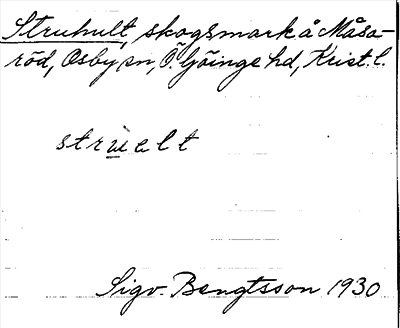 Struhult, skogsmark å Måsa-
röd, Osby sn, Ö. Göinge hd, Krist. l.
struelt
Sigv. Bengtsson 1930